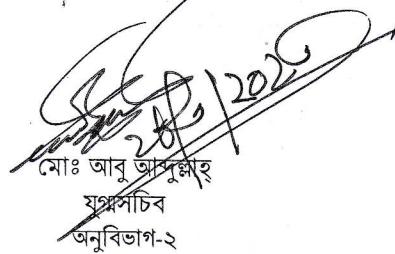 মোঃ আবু আব্দুল্লাহ্
যুগ্মসচিব
অনুবিভাগ-২